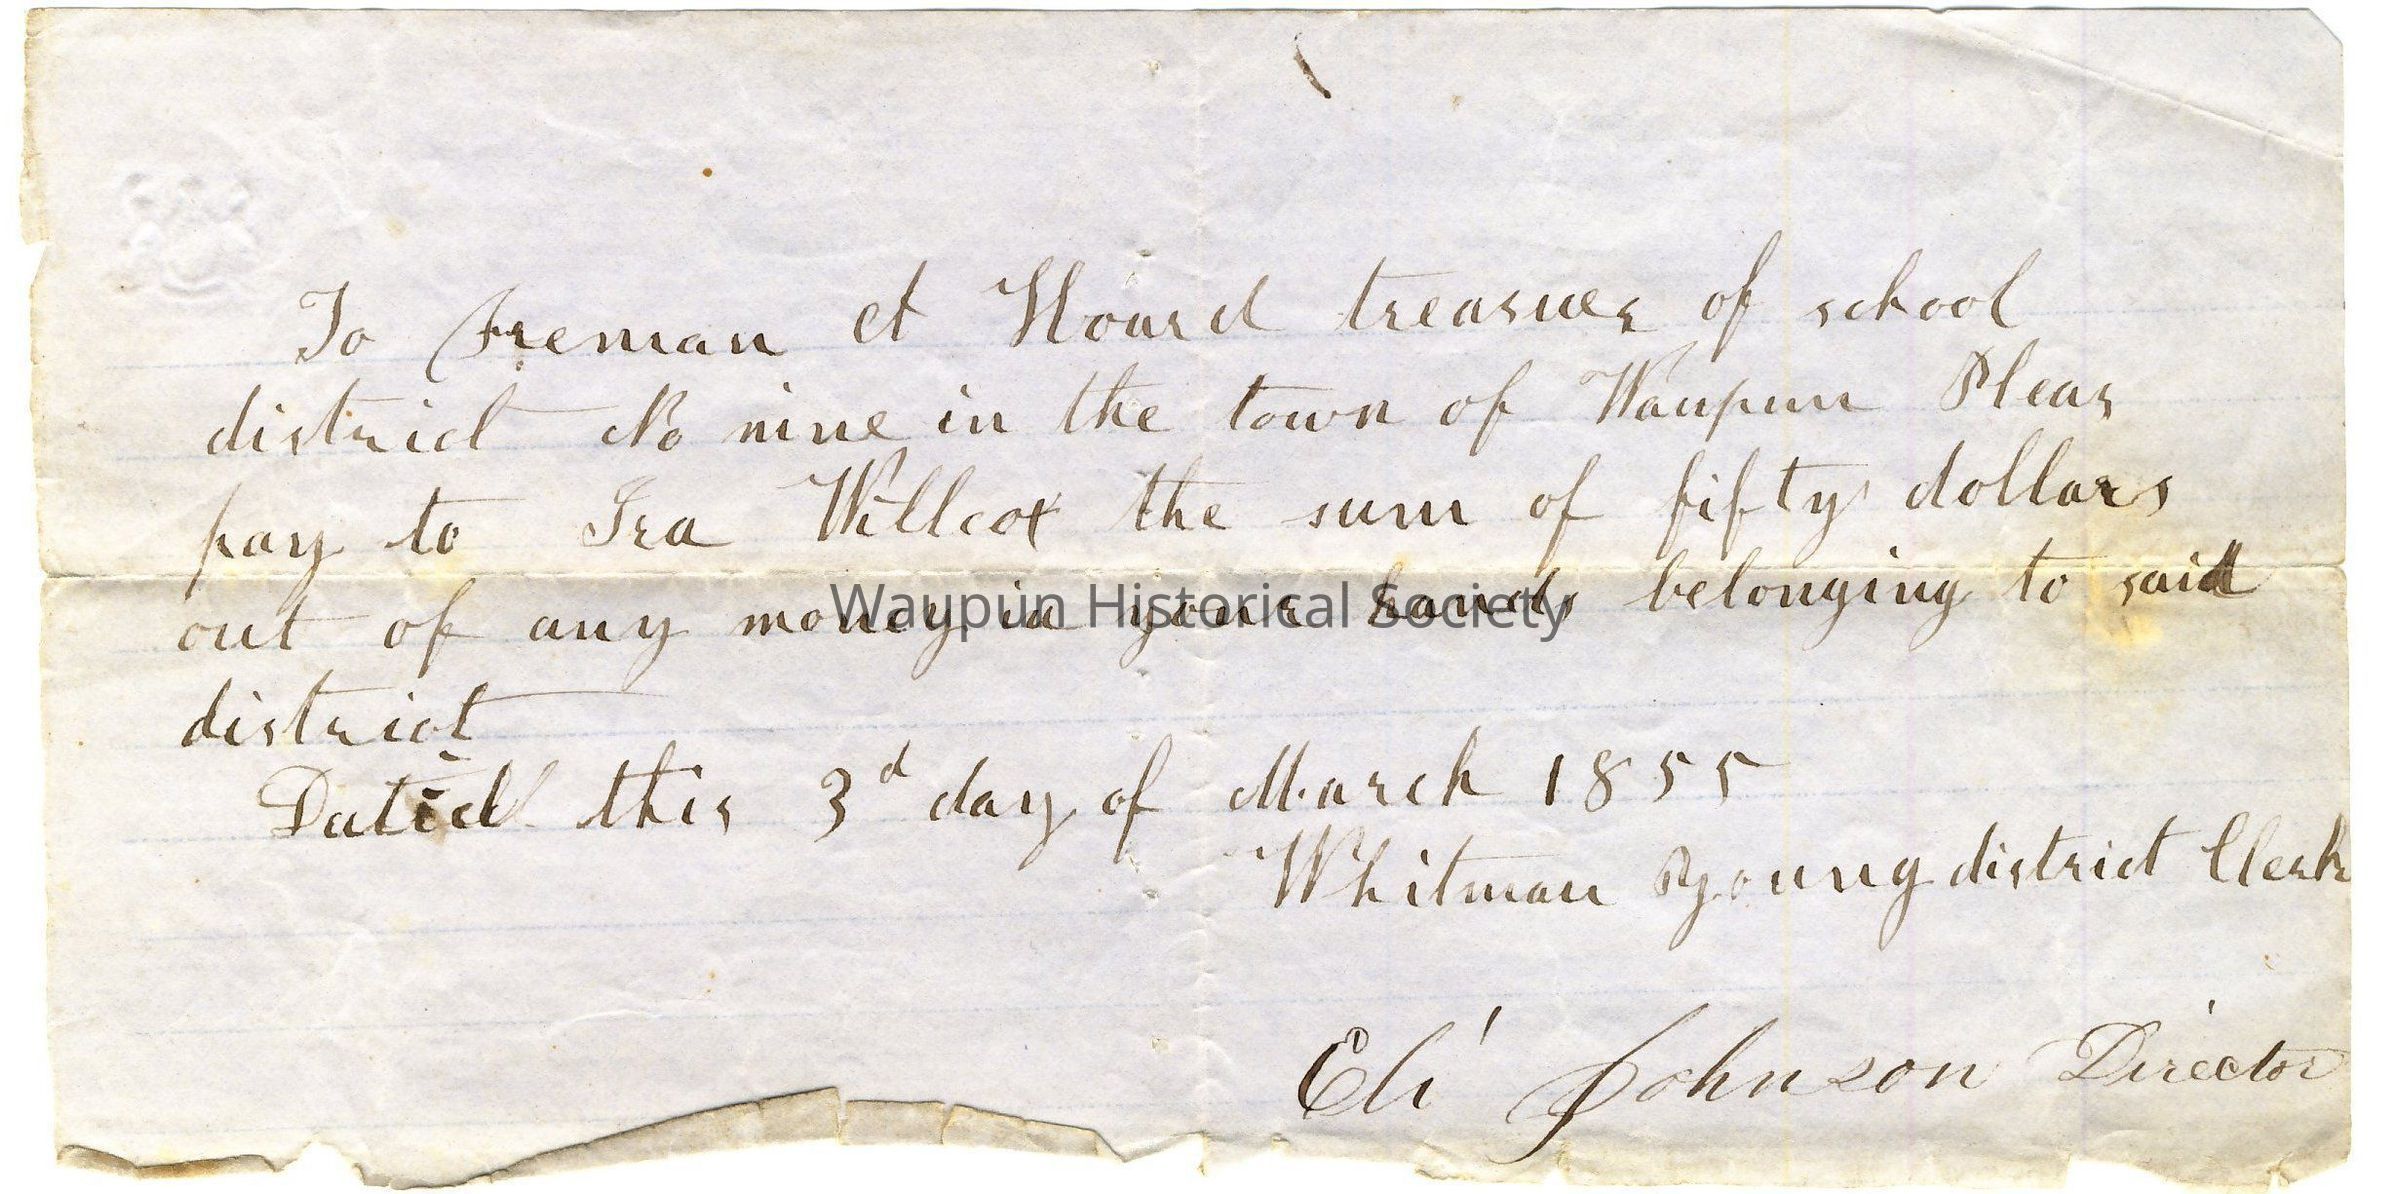 To Freman A Hourd treasuer of school
district No nine in the town of Waupun Pleas
pay to Ira Willcox the sum of fifty dollars
out of any money in your hands belonging to said
Waupun Historical Society
district
Dated this 3d day of March 1855
Whitman Young district Clerk
Eli Johnson Director